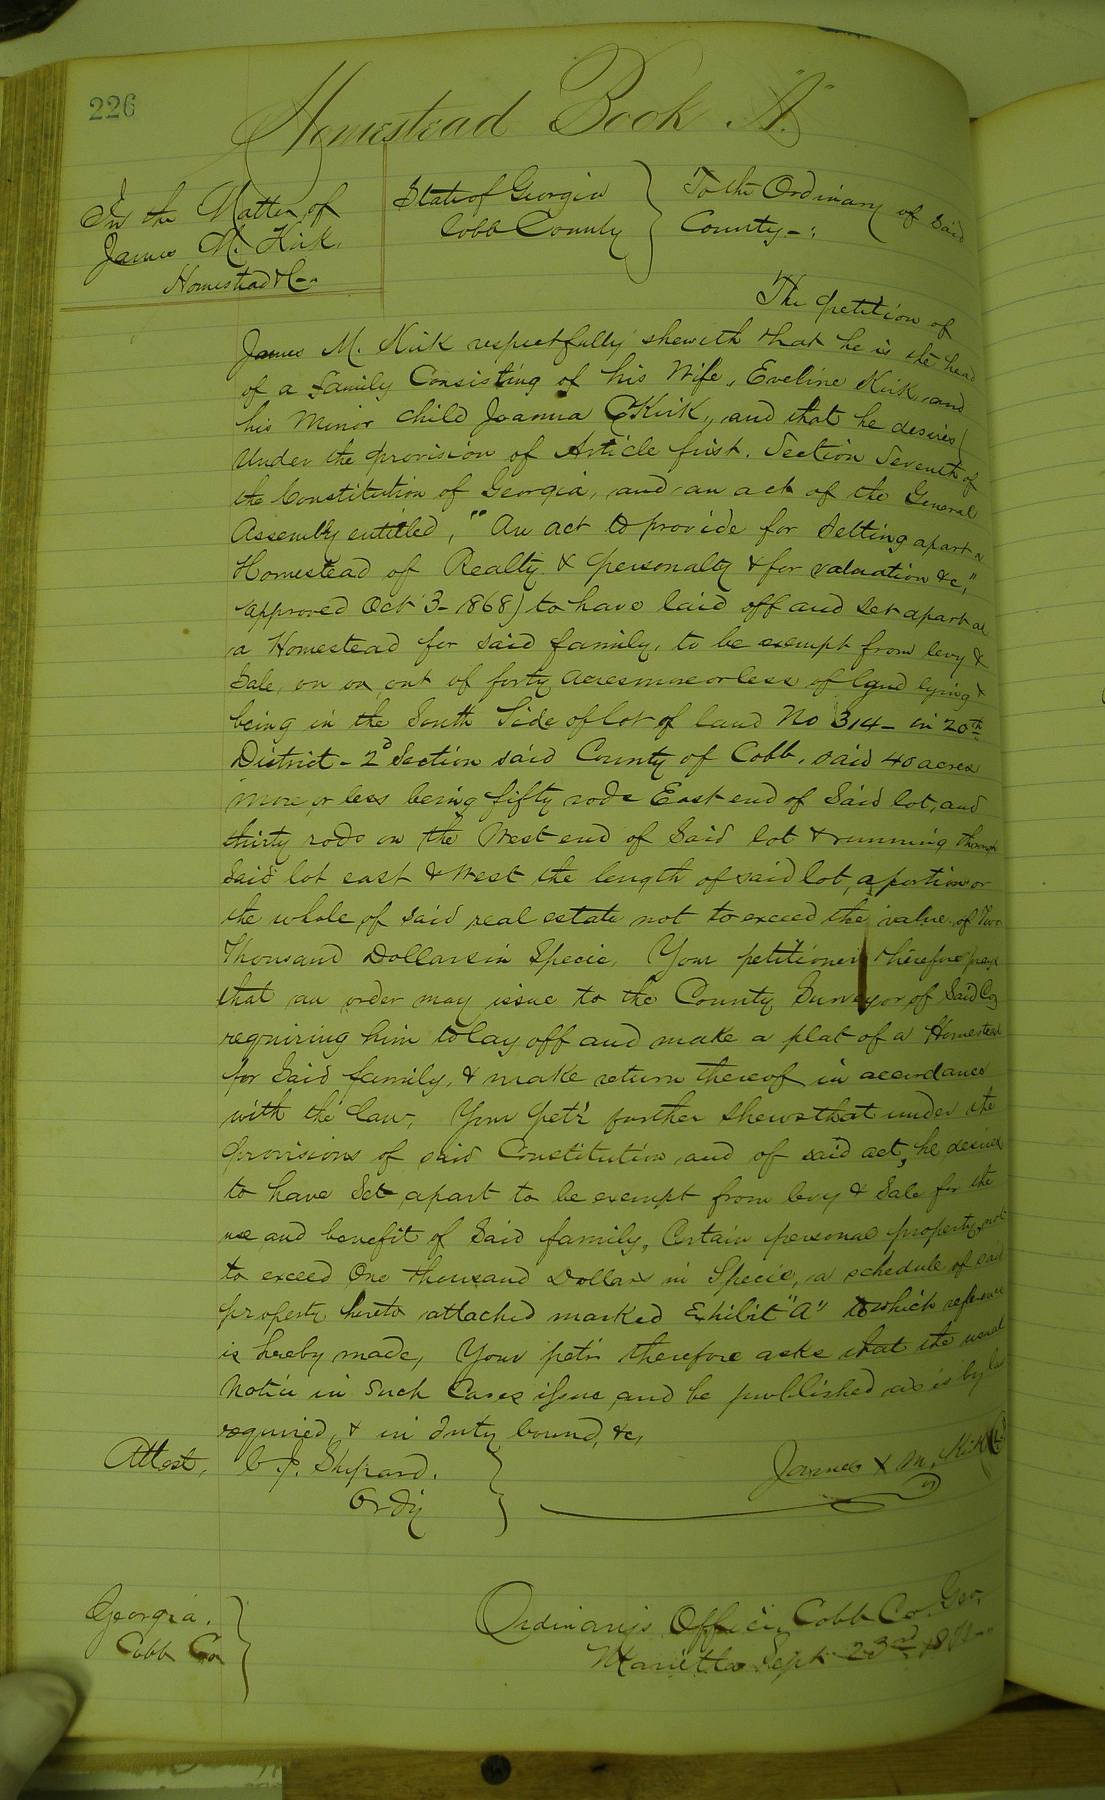 226
Homestead Book "A"
In the Matter of
James M. Kirk.
Homestead &c
State of Georgia
Cobb County
To the Ordinary of Said
County—:
The petition of
James M. Kirk respectfully sheweth that he is the head
of a family Consisting of his Wife, Eveline Kirk, and
his Minor child Joanna C Kirk, and that he desires (
Under the provision of Article first. Section Seventh of
the Constitution of Georgia, and an act of the General
Assembly entitled, "An act to provide for Setting apart a
Homestead of Realty & personalty & for valuation &c,"
approved Oct 3– 1868) to have laid off and set apart as
a Homestead for said family, to be exempt from levy &
Sale, on or out of forty acres more or less of land lying &
being in the South Side of lot of land No 314– in 20th
District – 2d Section said County of Cobb, said 40 acres
more or less being fifty rods East end of Said lot, and
thirty rods on the West end of Said lot & running through
Said lot east & West the length of said lot, a portion or
the whole of said real estate not to exceed the value of Two
Thousand Dollars in Specie, Your petitioner therefore prays
that an order may issue to the County Surveyor of Said Co
requiring him to lay off and make a plat of a Homestead
for Said family, & make return thereof in accordance
with the law, Your petr further Shews that under the
provisions of said Constitution and of said act, he desires
to have Set apart to be exempt from levy & Sale for the
use and benefit of Said family, Certain personal property not
to exceed One thousand Dollars in Specie, a schedule of said
property hereto attached marked Exhibit "A" to which reference
is hereby made, Your petr therefore asks that the usual
Notice in Such Cases issue and be published as is by law
required, & in duty bound, &c,
Attest, C J. Shepard.
Ordy
James X M. Kirk (LS
Georgia.
Cobb Co
Ordinary's Office, Cobb Co. Geo
Marietta Sept 23rd